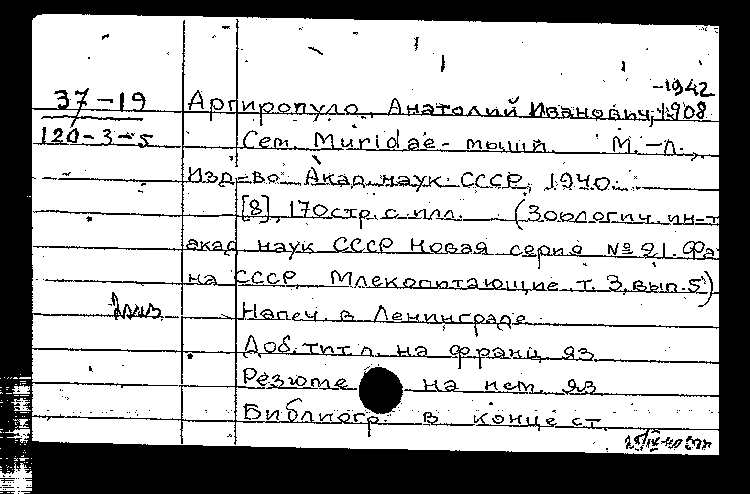 -1942
37-19 Аргиропуло, Анатолий Иванович, 1908
120-3-5 Сем. Muridae - мыши. М.-Л.,
Изд-во Акад. наук СССР, 1940.
[8], 170 стр. с илл. (Зоологич. ин-т
акад наук СССР Новая серия №21. Фау
на СССР. Млекопитающие т. 3, вып. 5)
Напеч. в Ленинграде
Доб. тит. л. на франц яз
Резюме на нем. яз
Библиогр в конце ст.